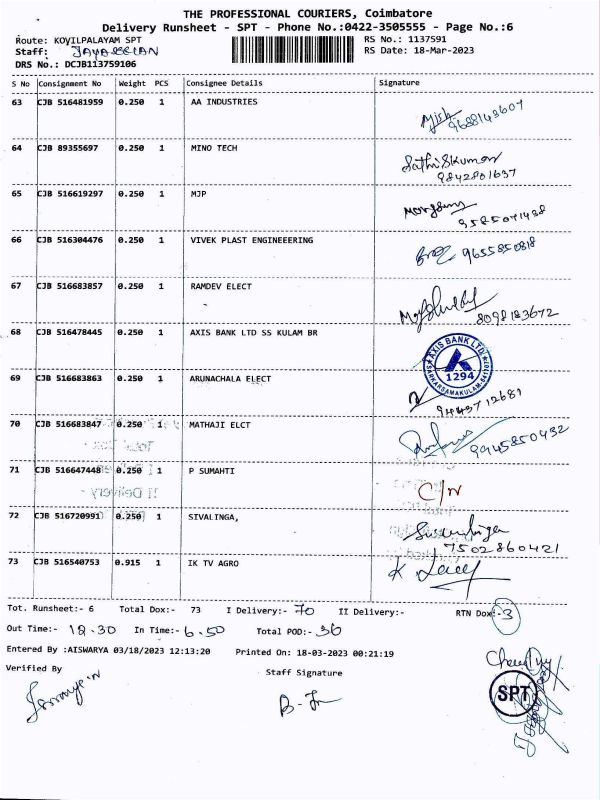 THE PROFESSIONAL COURIERS, Coimbatore
Delivery Runsheet - SPT - Phone No.:0422-3505555 - Page No.:6
Route: KOVILPALAYAM SPT RS No.: 1137591
Staff: JAYASEELAN RS Date: 18-Mar-2023
DRS No.: DCJB113759106
S No Consignment No Weight PCS Consignee Details Signature
63 CJB 516481959 0.250 1 AA INDUSTRIES
9688143607
64 CJB 89355697 0.250 1 MINO TECH SathiSkumar
9842801637
65 CJB 516619297 0.250 1 MJP
9585071488
66 CJB 516304476 0.250 1 VIVEK PLAST ENGINEEERING 9655850818
67 CJB 516683857 0.250 1 RAMDEV ELECT
8098183672
68 CJB 516478445 0.250 1 AXIS BANK LTD SS KULAM BR
AXIS BANK LTD.
1294
69 CJB 516683863 0.250 1 ARUNACHALA ELECT
9443712681
70 CJB 516683847 0.250 1 MATHAJI ELCT 9945850432
71 CJB 516647448 0.250 1 P SUMAHTI
C/N
72 CJB 516720991 0.250 1 SIVALINGA,
7502860421
73 CJB 516540753 0.915 1 IK TV AGRO
Tot. Runsheet:- 6 Total Dox:- 73 I Delivery:- 70 II Delivery:- RTN Dox:- 3
Out Time:- 12.30 In Time:- 6.50 Total POD:- 36
Entered By :AISWARYA 03/18/2023 12:13:20 Printed On: 18-03-2023 00:21:19
Verified By Staff Signature
SPT